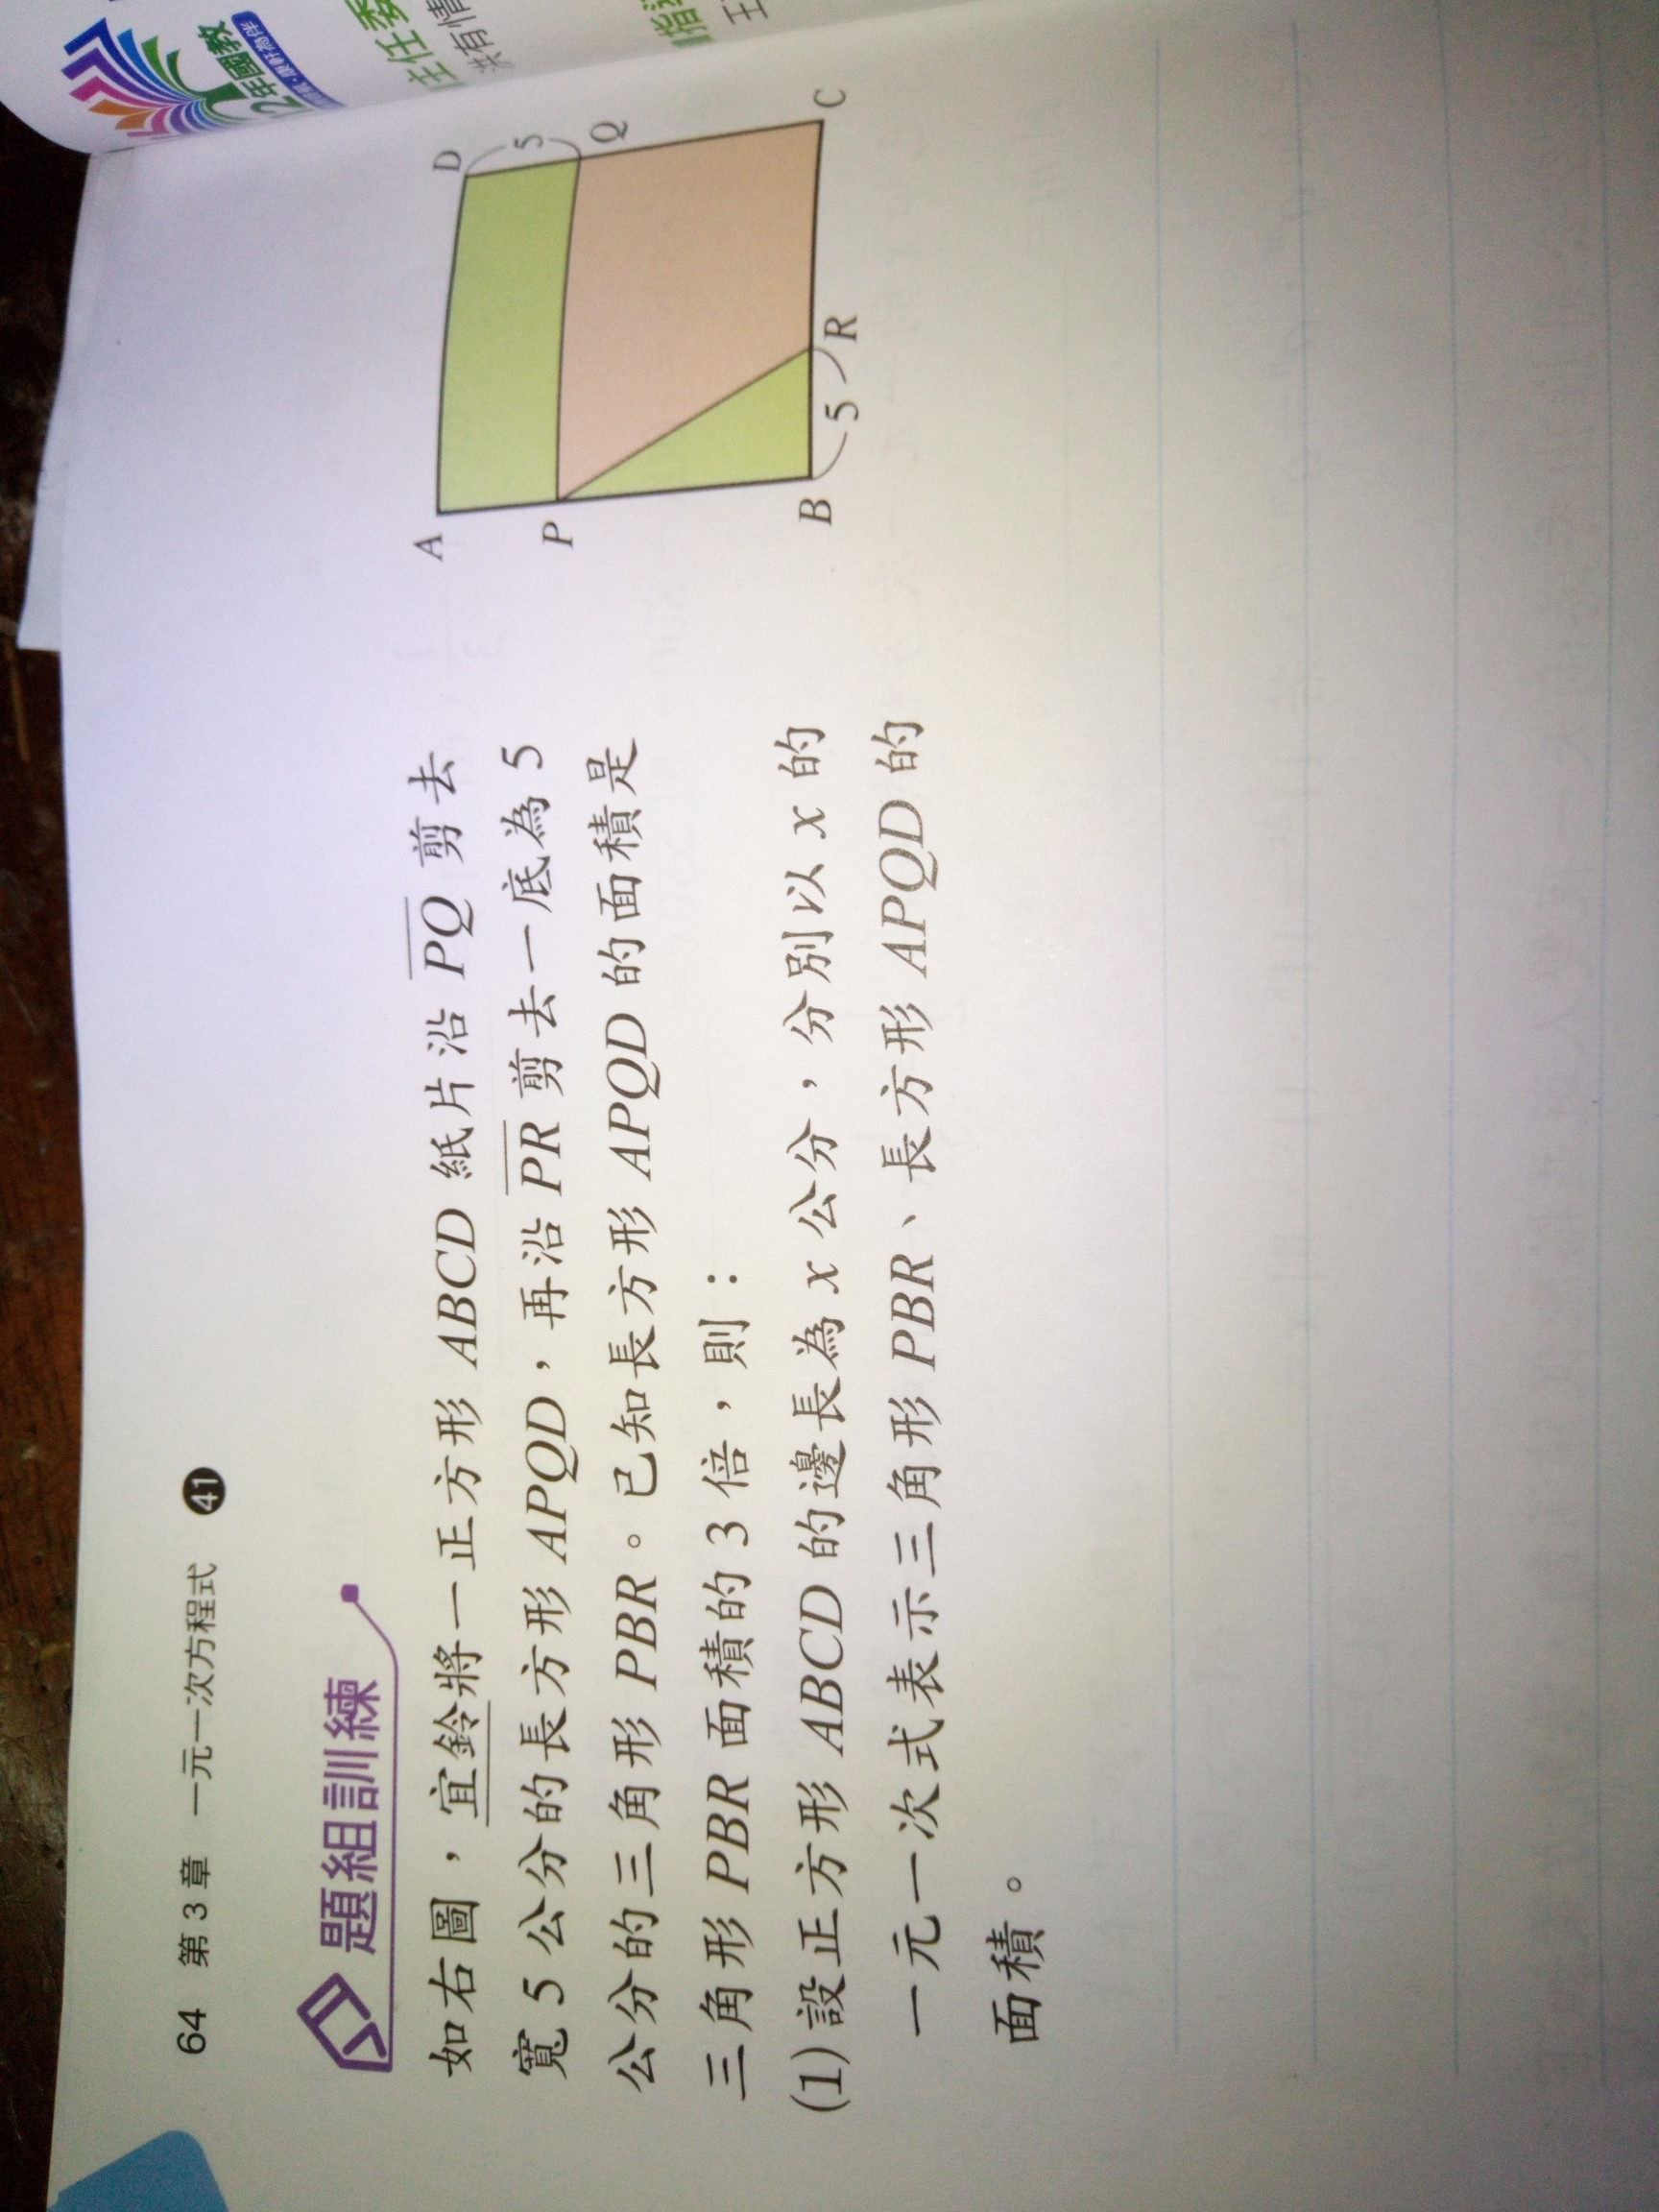 64 第 3 章 一元一次方程式 41
題組訓練
如右圖，宜鈴將一正方形 ABCD 紙片沿 PQ 剪去
寬 5 公分的長方形 APQD，再沿 PR 剪去一底為 5
公分的三角形 PBR。已知長方形 APQD 的面積是
三角形 PBR 面積的 3 倍，則：
(1) 設正方形 ABCD 的邊長為 x 公分，分別以 x 的
一元一次式表示三角形 PBR、長方形 APQD 的
面積。
A
D
5
P
Q
B
5
R
C
2年國教
主任委
洪有情